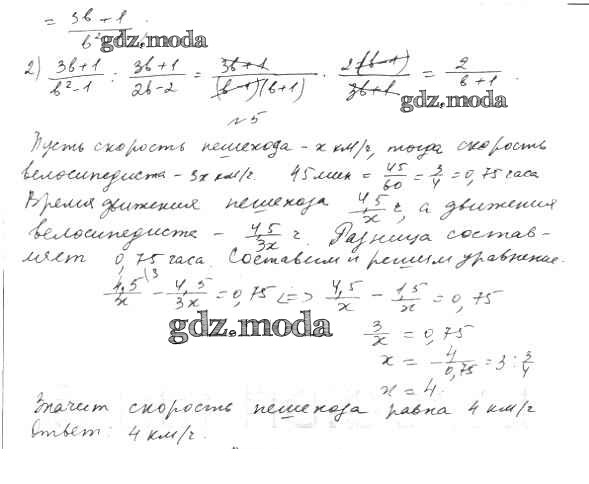 = 3b+1 / b²
gdz.moda
2) 3b+1 / b²-1 : 3b+1 / 2b-2 = 3b+1 / (b-1)(b+1) · 2(b-1) / 3b+1 = 2 / b+1 .
gdz.moda
№5
Пусть скорость пешехода - x км/ч, тогда скорость
велосипедиста - 3x км/ч. 45 мин = 45/60 = 3/4 = 0,75 часа
Время движения пешехода 4,5/x ч, а движения
велосипедиста - 4,5/3x ч. Разница состав-
ляет 0,75 часа. Составим и решим уравнение.
4,5/x \3 - 4,5/3x = 0,75 <=> 4,5/x - 1,5/x = 0,75
gdz.moda
3/x = 0,75
x = 4/0,75 = 3 : 3/4
x = 4
Значит скорость пешехода равна 4 км/ч
Ответ: 4 км/ч.